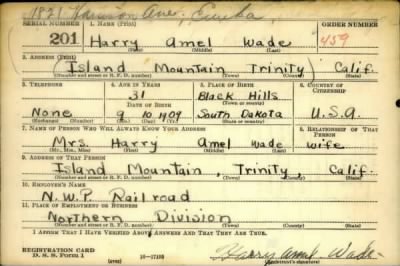 1821 Harrison Ave. Eureka
SERIAL NUMBER 1. NAME (Print) ORDER NUMBER
201 Harry Amel Wade 459
(First) (Middle) (Last)
2. ADDRESS (Print)
(Island Mountain Trinity) Calif.
(Number and street or R. F. D. number) (Town) (County) (State)
3. TELEPHONE 4. AGE IN YEARS 5. PLACE OF BIRTH 6. COUNTRY OF CITIZENSHIP
31 Black Hills
DATE OF BIRTH (Town or county)
None 9 10 1909 South Dakota U.S.A
(Exchange) (Number) (Mo.) (Day) (Yr.) (State or country)
7. NAME OF PERSON WHO WILL ALWAYS KNOW YOUR ADDRESS 8. RELATIONSHIP OF THAT PERSON
Mrs. Harry Amel Wade wife
(Mr., Mrs., Miss) (First) (Middle) (Last)
9. ADDRESS OF THAT PERSON
Island Mountain, Trinity Calif.
(Number and street or R. F. D. number) (Town) (County) (State)
10. EMPLOYER'S NAME
N.W.P. Railroad
11. PLACE OF EMPLOYMENT OR BUSINESS
Northern Division
(Number and street or R. F. D. number) (Town) (County) (State)
I AFFIRM THAT I HAVE VERIFIED ABOVE ANSWERS AND THAT THEY ARE TRUE.
REGISTRATION CARD
D. S. S. Form 1 (over) 16-17105 Harry Amel Wade
(Registrant's signature)